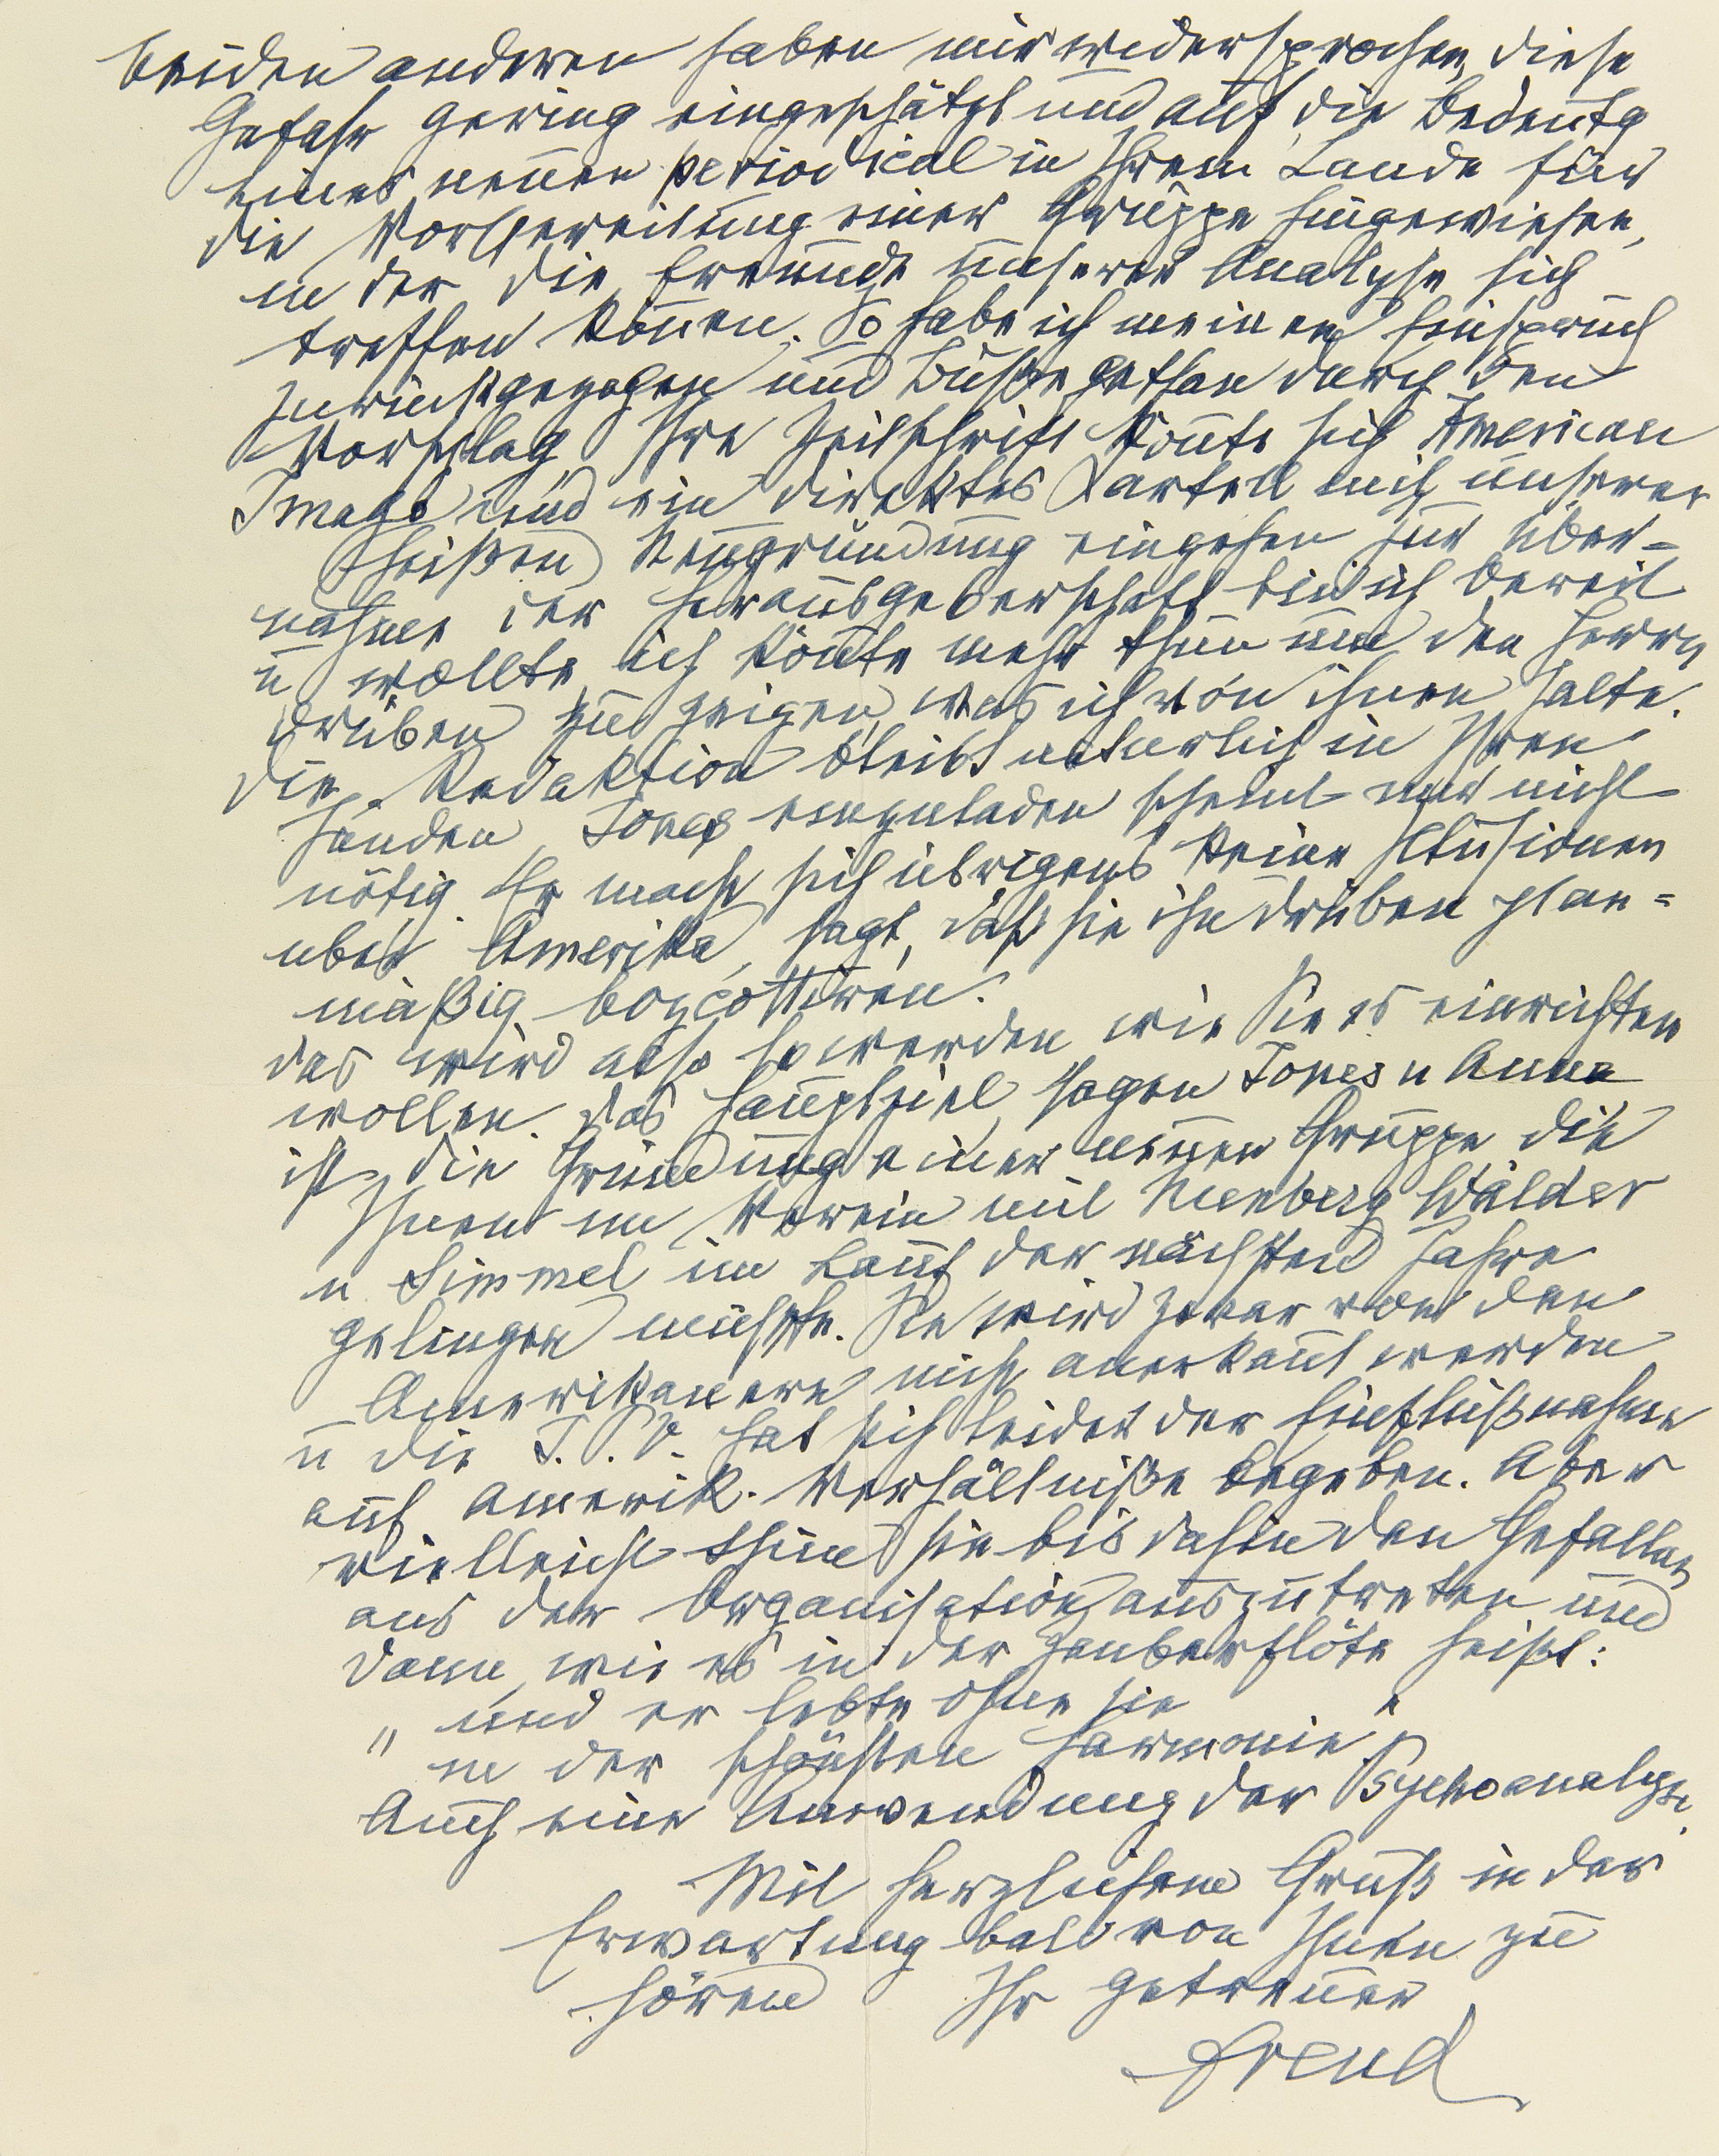 beiden anderen haben mir widersprochen, diese
Gefahr gering eingeschätzt und auf die Bedeutg
eines neuen periodical in Ihrem Lande für
die Vorbereitung einer Gruppe hingewiesen,
in der die Freunde unserer Analyse sich
treffen können. So habe ich meinen Einspruch
zurückgezogen und Buße gethan durch den
Vorschlag, Ihre Zeitschrift könnte sich American
Imago und ein direktes Kartell mit unserer
(heißen) Neugründung eingehen zur Über-
nahme der Herausgeberschaft bin ich bereit
u wollte, ich könnte mehr thun um den Herrn
drüben zu zeigen, was ich von ihnen halte.
Die Redaktion bleibt natürlich in Ihren
Händen, Jones einzuladen scheint mir nicht
nötig. Er macht sich übrigens keine Illusionen
über Amerika, sagt, daß sie ihn drüben plan-
mäßig boycottiren.
Das wird also so werden wie Sie es einrichten
wollen. Das Hauptziel, sagen Jones u Anna
ist die Gründung einer neuen Gruppe die
Ihnen im Verein mit Nunberg Wälder
u Simmel im Lauf der nächsten Jahre
gelingen müßte. Sie wird zwar von den
Amerikanern nicht anerkannt werden
u die I.P.V. hat sich leider der Einflußnahme
auf amerik. Verhältniße begeben. Aber
vielleicht thun sie bis dahin den Gefallen
aus der Organisation auszutreten und
dann, wie es in der Zauberflöte heißt:
„und er lebte ohne sie
in der schönsten Harmonie“
Auch eine Anwendung der Psychoanalyse.
Mit herzlichem Gruß in der
Erwartung bald von Ihnen zu
hören Ihr getreuer
Freud